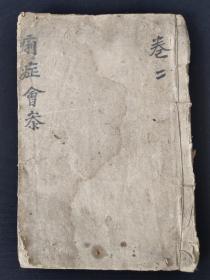 痢症會參
卷二